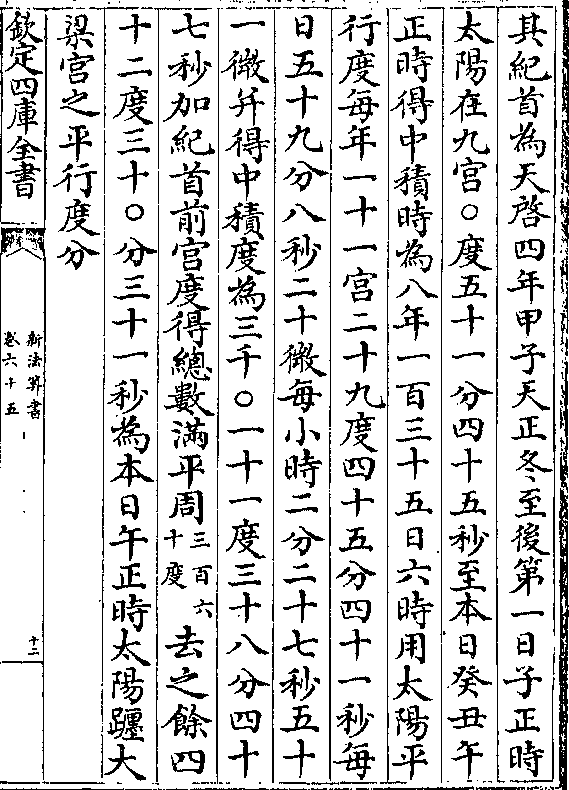 其紀首為天啓四年甲子天正冬至後第一日子正時
太陽在九宮○度五十一分四十五秒至本日癸丑午
正時得中積時為八年一百三十五日六時用太陽平
行度每年一十一宮二十九度四十五分四十一秒每
日五十九分八秒二十微每小時二分二十七秒五十
一微并得中積度為三千○一十一度三十八分四十
七秒加紀首前宮度得總數滿平周三百六十度去之餘四
十二度三十○分三十一秒為本日午正時太陽躔大
梁宮之平行度分
欽定四庫全書
新法算書
卷六十五
十二